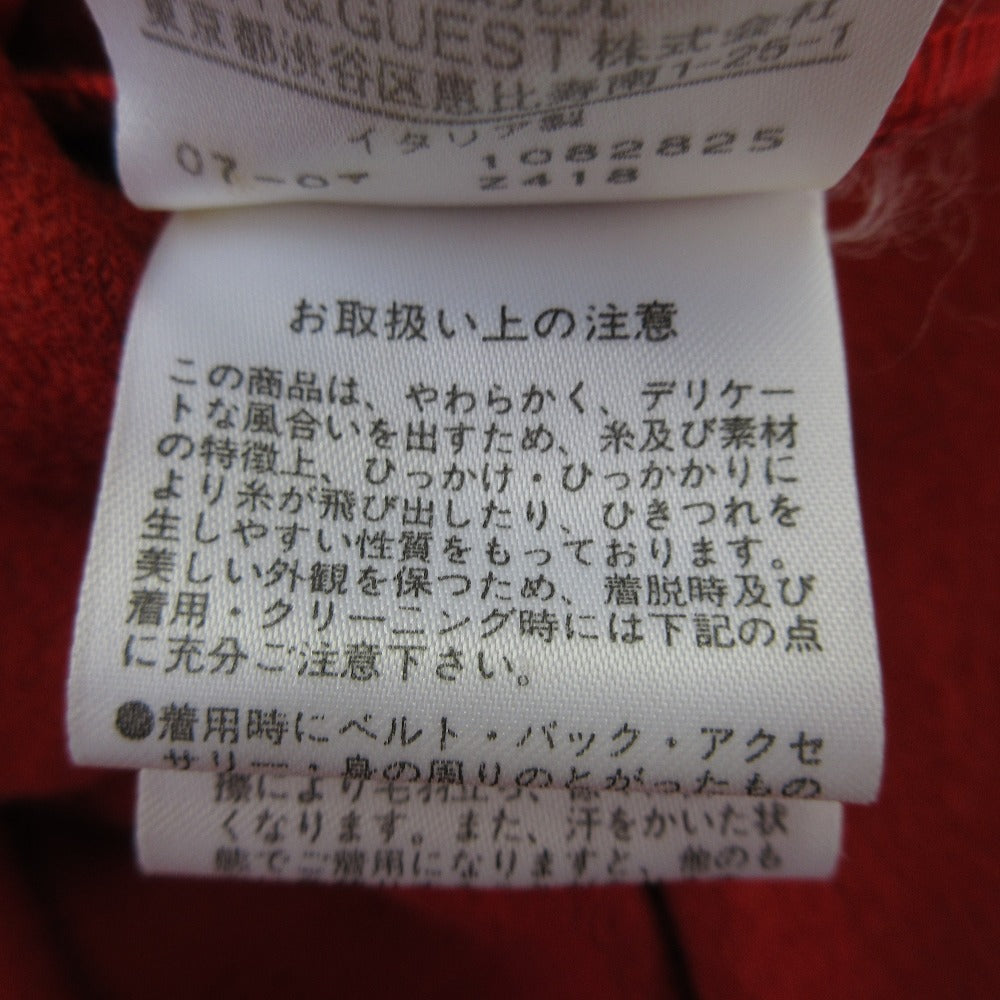 &GUEST株式会社
東京都渋谷区恵比寿南1-25-1
イタリア製
07-01 1082825
2418
お取扱い上の注意
この商品は、やわらかく、デリケー
トな風合いを出すため、糸及び素材
の特徴上、ひっかけ・ひっかかりに
より糸が飛び出したり、ひきつれを
生しやすい性質をもっております。
美しい外観を保つため、着脱時及び
着用・クリーニング時には下記の点
に充分ご注意下さい。
●着用時にベルト・バック・アクセ
サリー・身の周りのとがったもの
際により毛羽立つ、
くなります。また、汗をかいた状
態でご着用になりますと、他のも